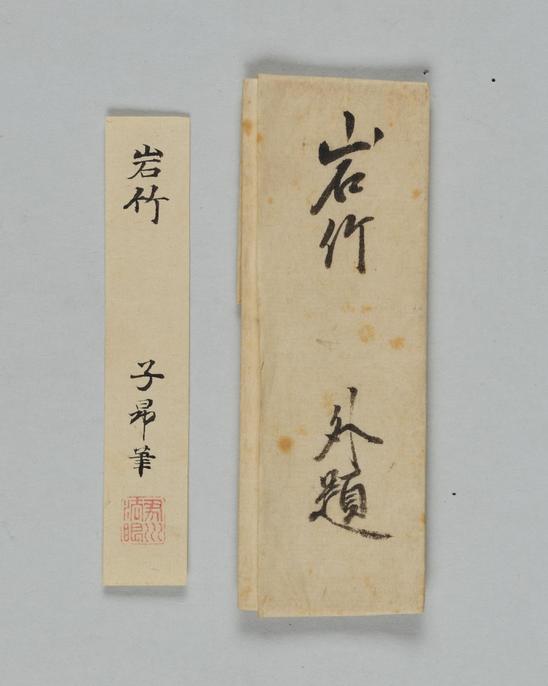 岩竹
外題
岩竹
子昂筆